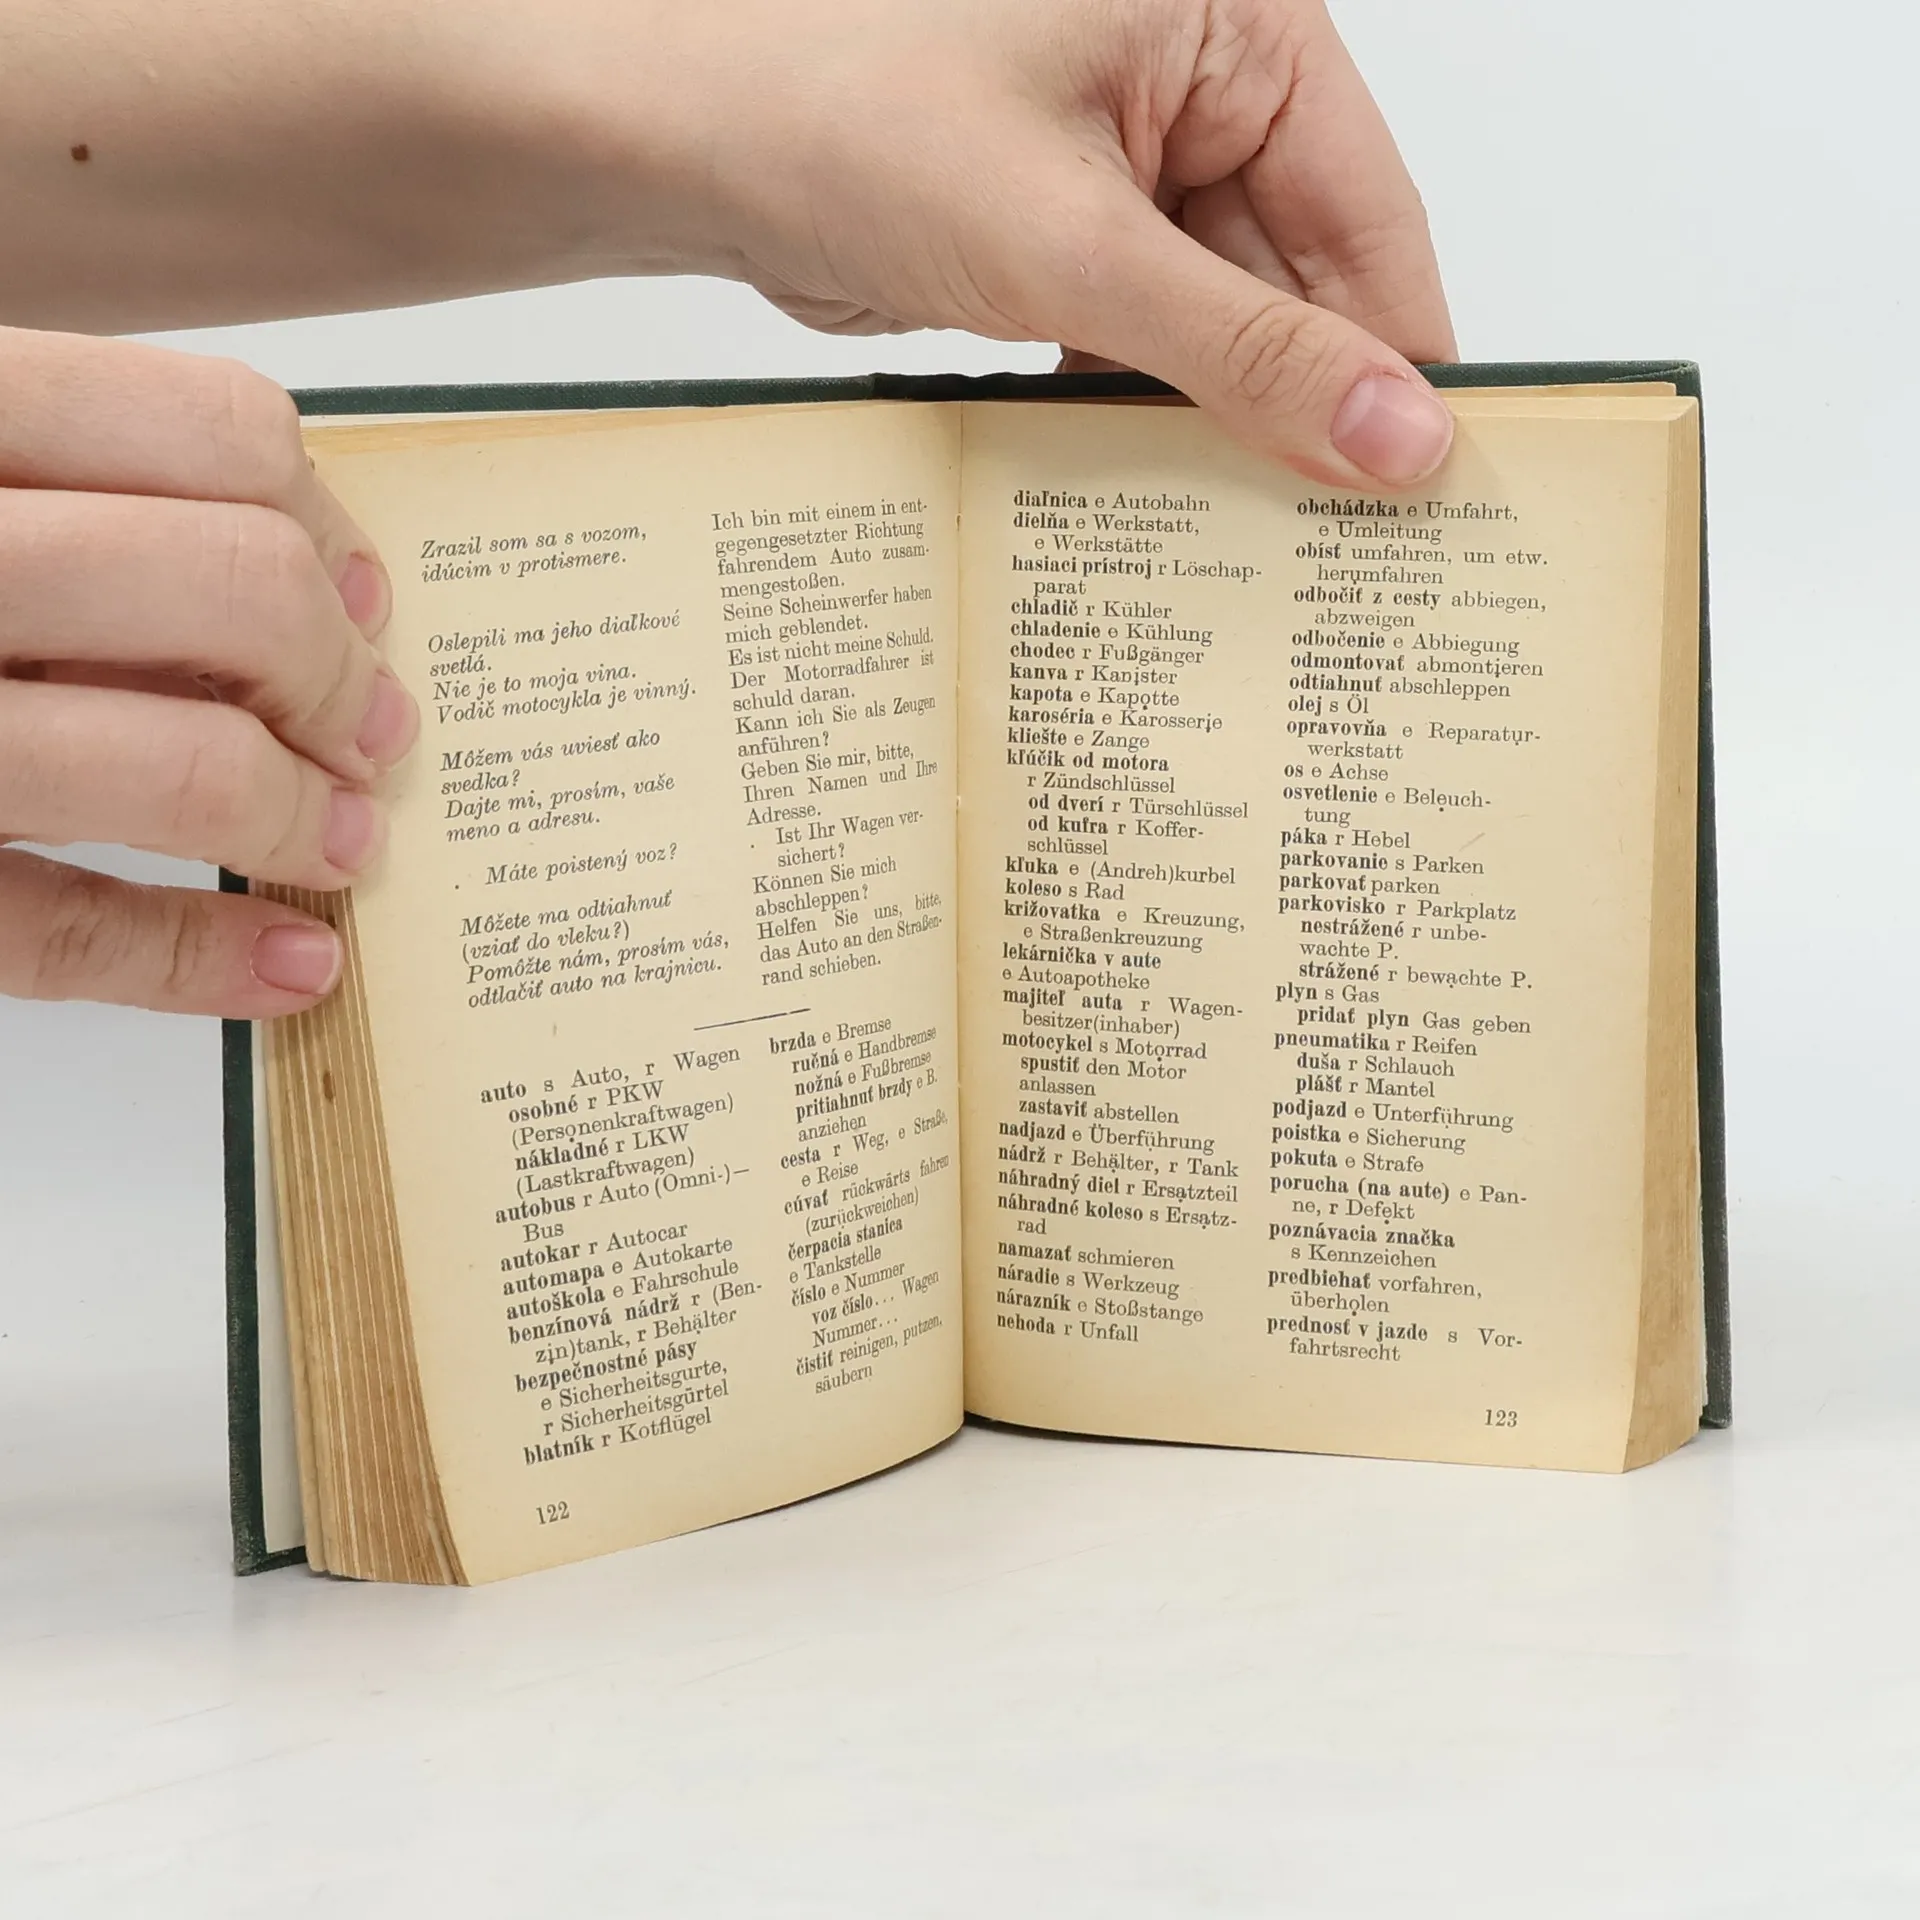 Zrazil som sa s vozom,
idúcim v protismere.
Oslepili ma jeho diaľkové
svetlá.
Nie je to moja vina.
Vodič motocykla je vinný.
Môžem vás uviesť ako
svedka?
Dajte mi, prosím, vaše
meno a adresu.
. Máte poistený voz?
Môžete ma odtiahnuť
(vziať do vleku?)
Pomôžte nám, prosím vás,
odtlačiť auto na krajnicu.
Ich bin mit einem in ent-
gegengesetzter Richtung
fahrendem Auto zusam-
mengestoßen.
Seine Scheinwerfer haben
mich geblendet.
Es ist nicht meine Schuld.
Der Motorradfahrer ist
schuld daran.
Kann ich Sie als Zeugen
anführen?
Geben Sie mir, bitte,
Ihren Namen und Ihre
Adresse.
. Ist Ihr Wagen ver-
sichert?
Können Sie mich
abschleppen?
Helfen Sie uns, bitte,
das Auto an den Straßen-
rand schieben.
auto s Auto, r Wagen
osobné r PKW
(Personenkraftwagen)
nákladné r LKW
(Lastkraftwagen)
autobus r Auto (Omni-)—
Bus
autokar r Autocar
automapa e Autokarte
autoškola e Fahrschule
benzínová nádrž r (Ben-
zin)tank, r Behälter
bezpečnostné pásy
e Sicherheitsgurte,
r Sicherheitsgürtel
blatník r Kotflügel
brzda e Bremse
ručná e Handbremse
nožná e Fußbremse
pritiahnuť brzdy e B.
anziehen
cesta r Weg, e Straße,
e Reise
cúvať rückwärts fahren
(zurückweichen)
čerpacia stanica
e Tankstelle
číslo e Nummer
voz číslo... Wagen
Nummer...
čistiť reinigen, putzen,
säubern
122
diaľnica e Autobahn
dielňa e Werkstatt,
e Werkstätte
hasiaci prístroj r Löschap-
parat
chladič r Kühler
chladenie e Kühlung
chodec r Fußgänger
kanva r Kanister
kapota e Kapotte
karoséria e Karosserie
kliešte e Zange
kľúčik od motora
r Zündschlüssel
od dverí r Türschlüssel
od kufra r Koffer-
schlüssel
kľuka e (Andreh)kurbel
koleso s Rad
križovatka e Kreuzung,
e Straßenkreuzung
lekárnička v aute
e Autoapotheke
majiteľ auta r Wagen-
besitzer(inhaber)
motocykel s Motorrad
spustiť den Motor
anlassen
zastaviť abstellen
nadjazd e Überführung
nádrž r Behälter, r Tank
náhradný diel r Ersatzteil
náhradné koleso s Ersatz-
rad
namazať schmieren
náradie s Werkzeug
nárazník e Stoßstange
nehoda r Unfall
obchádzka e Umfahrt,
e Umleitung
obísť umfahren, um etw.
herumfahren
odbočiť z cesty abbiegen,
abzweigen
odbočenie e Abbiegung
odmontovať abmontieren
odtiahnuť abschleppen
olej s Öl
opravovňa e Reparatur-
werkstatt
os e Achse
osvetlenie e Beleuch-
tung
páka r Hebel
parkovanie s Parken
parkovať parken
parkovisko r Parkplatz
nestrážené r unbe-
wachte P.
strážené r bewachte P.
plyn s Gas
pridať plyn Gas geben
pneumatika r Reifen
duša r Schlauch
plášť r Mantel
podjazd e Unterführung
poistka e Sicherung
pokuta e Strafe
porucha (na aute) e Pan-
ne, r Defekt
poznávacia značka
s Kennzeichen
predbiehať vorfahren,
überholen
prednosť v jazde s Vor-
fahrtsrecht
123